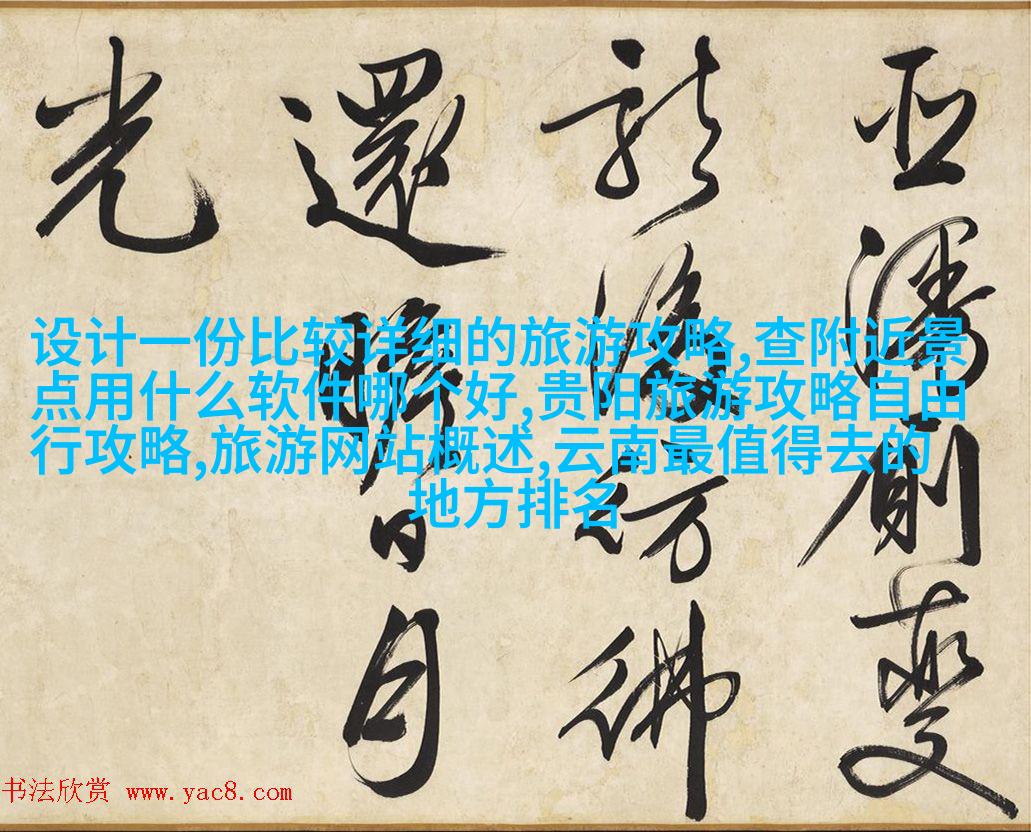 龍後彷彿
還瞻日月
光
设计一份比较详细的旅游攻略,查附近景
点用什么软件哪个好,贵阳旅游攻略自由
行攻略,旅游网站概述,云南最值得去的
地方排名
书法欣赏 www.yac8.com